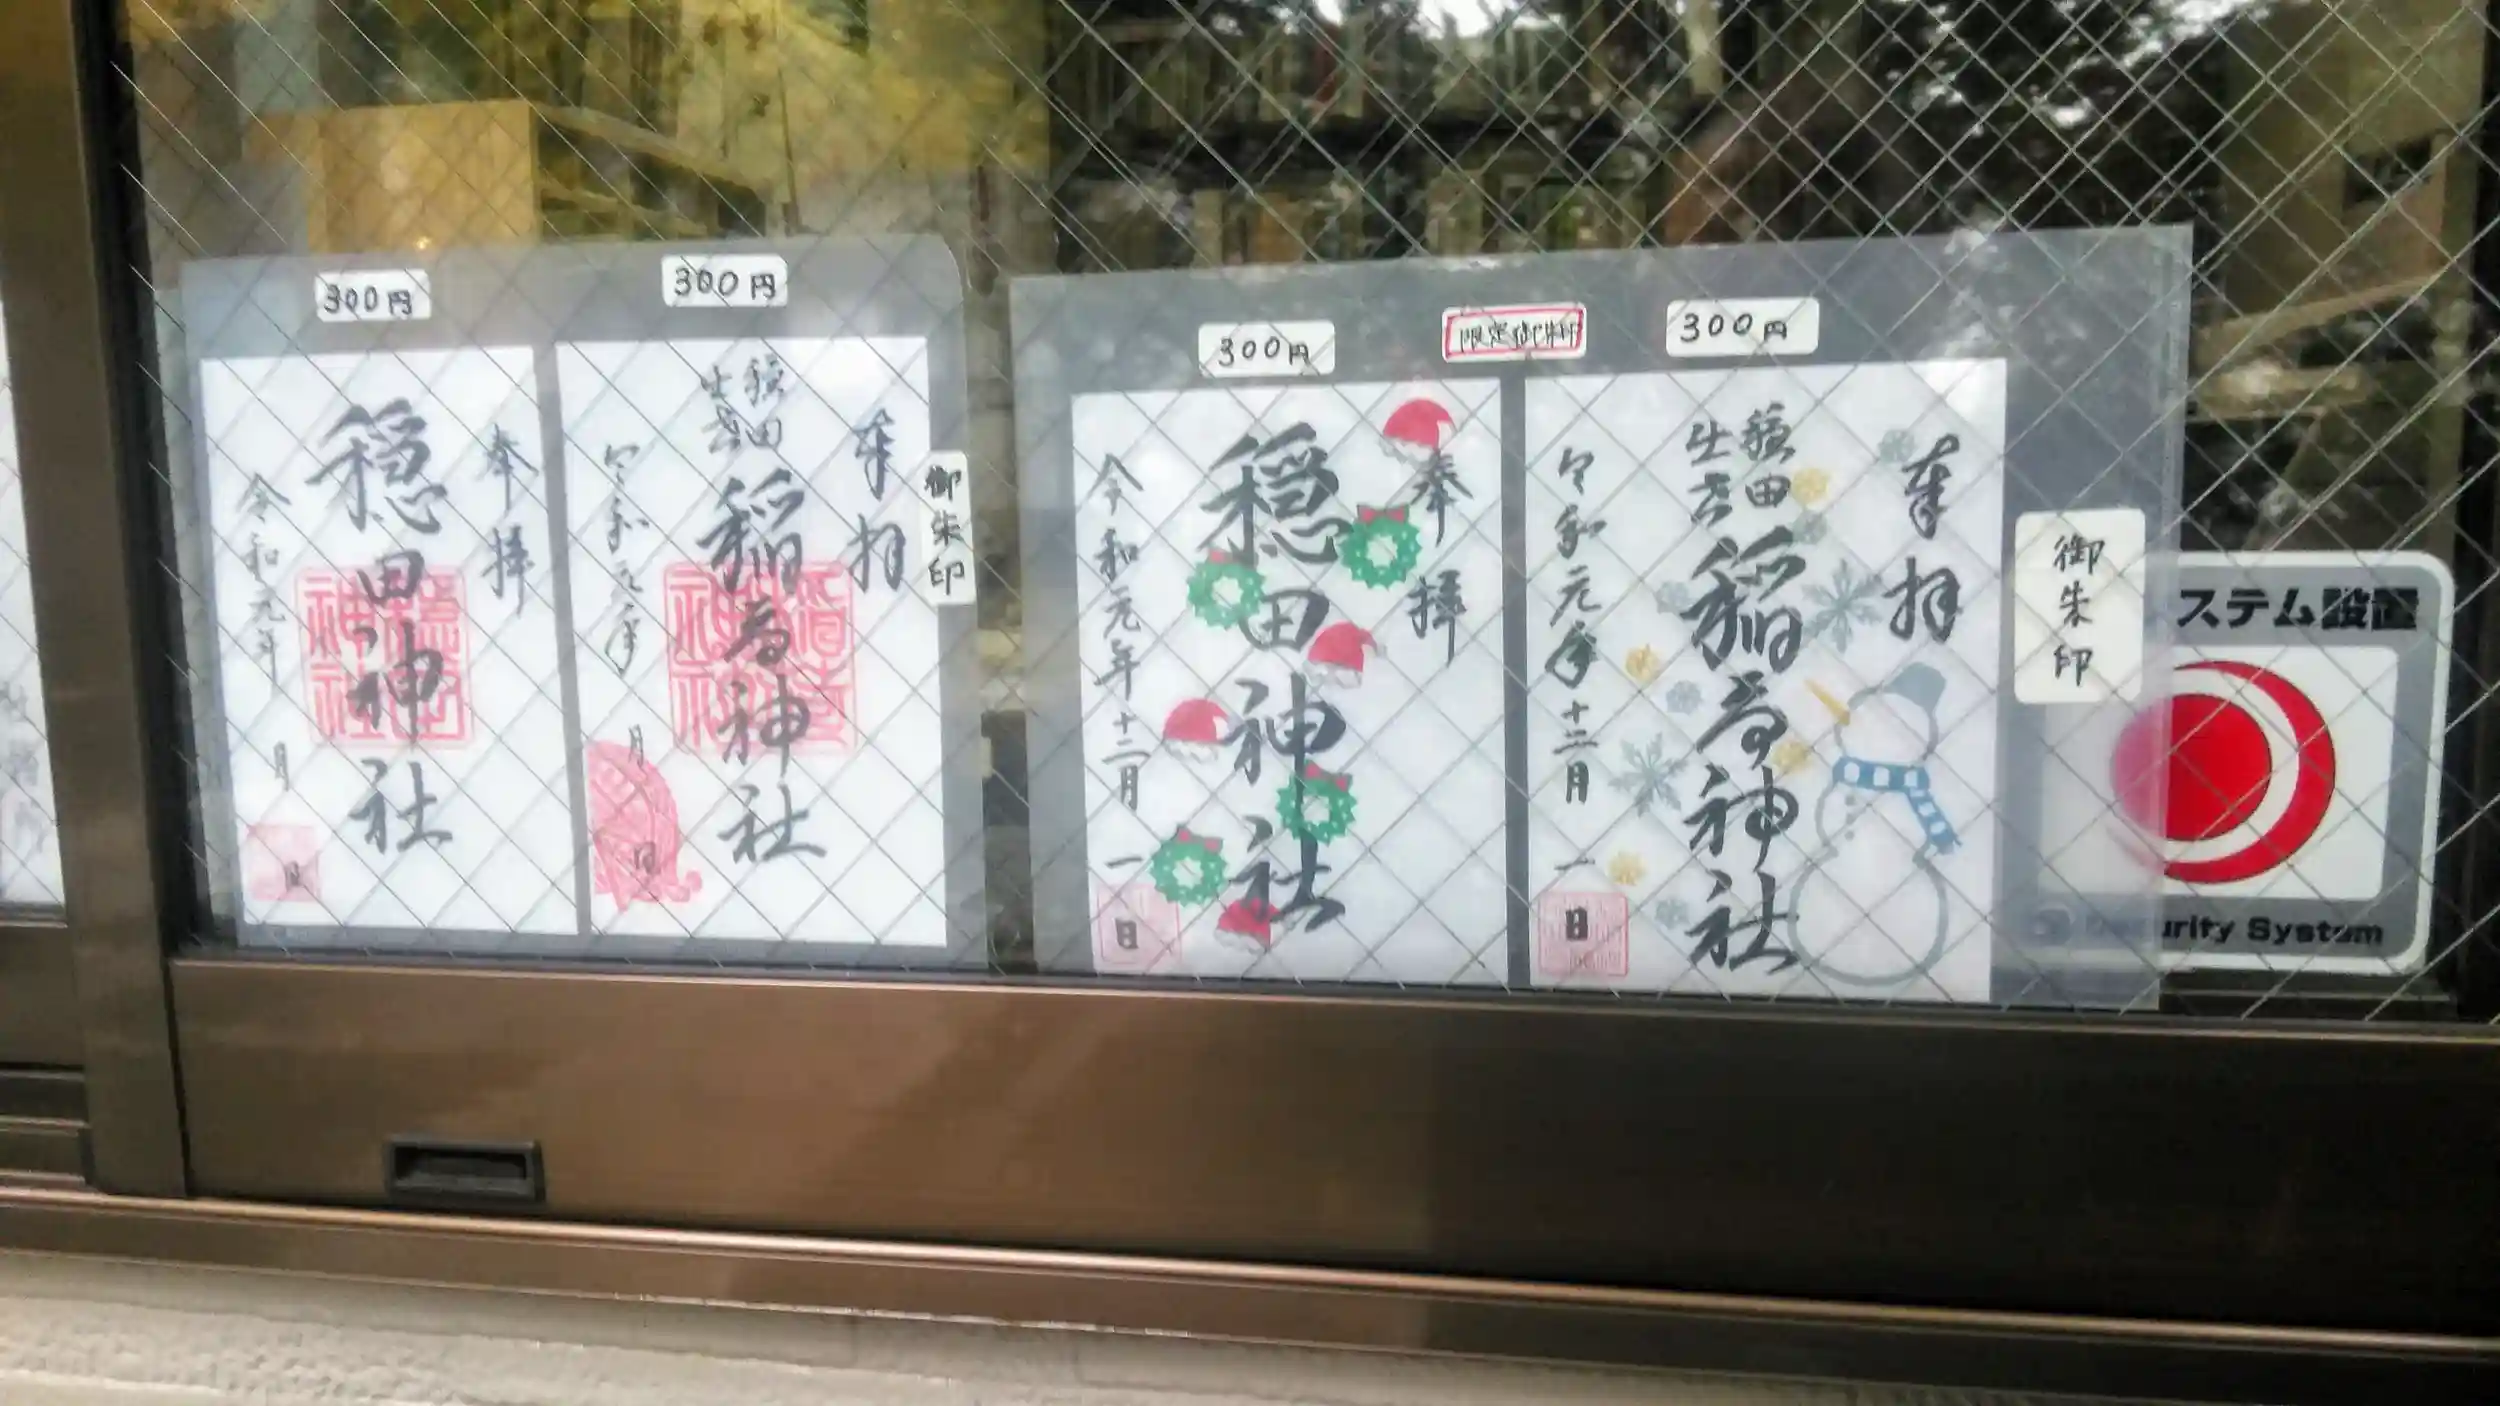 300円
奉拝
穏田神社
令和元年
月
日
穏田神社
300円
奉拝
穏田
稲荷神社
令和元年
月
日
御朱印
300円
奉拝
穏田神社
令和元年十二月
一日
限定御朱印
300円
奉拝
穏田
稲荷神社
令和元年十二月
一日
御朱印
ステム設置
urity System